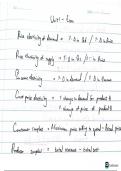 Unit 1 - Econ
Price elasticity of demand = % Δ in Qd / % Δ in Price
Price elasticity of supply = % Δ in Qs / % Δ in Price
Income elasticity = % Δ in Demand / % Δ in Income
Cross price elasticity = % change in demand for product A
% change in price of product B
Consumer surplus = Maximum price willing to spend - Actual price
Producer surplus = total revenue - total cost